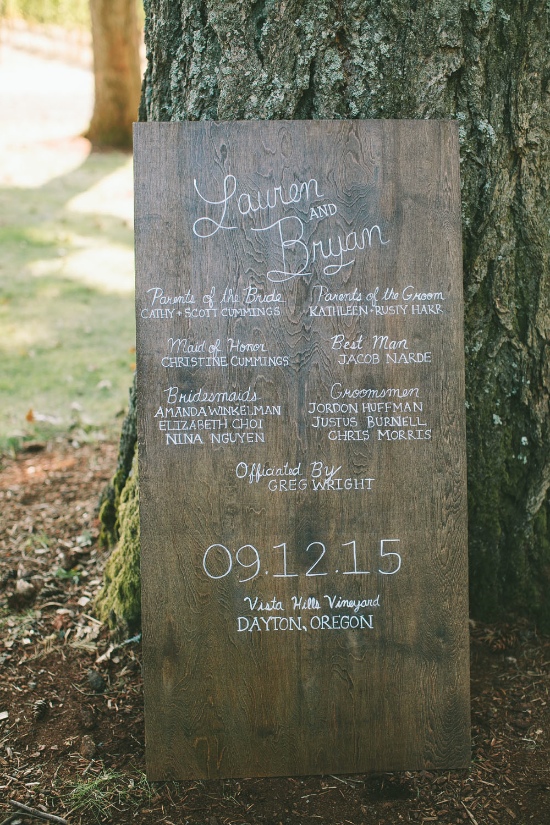 Lauren
AND
Bryan
Parents of the Bride
CATHY + SCOTT CUMMINGS
Parents of the Groom
KATHLEEN + RUSTY HARR
Maid of Honor
CHRISTINE CUMMINGS
Best Man
JACOB NARDE
Bridesmaids
AMANDA WINKELMAN
ELIZABETH CHOI
NINA NGUYEN
Groomsmen
JORDON HUFFMAN
JUSTUS BURNELL
CHRIS MORRIS
Officiated By
GREG WRIGHT
09.12.15
Vista Hills Vineyard
DAYTON, OREGON